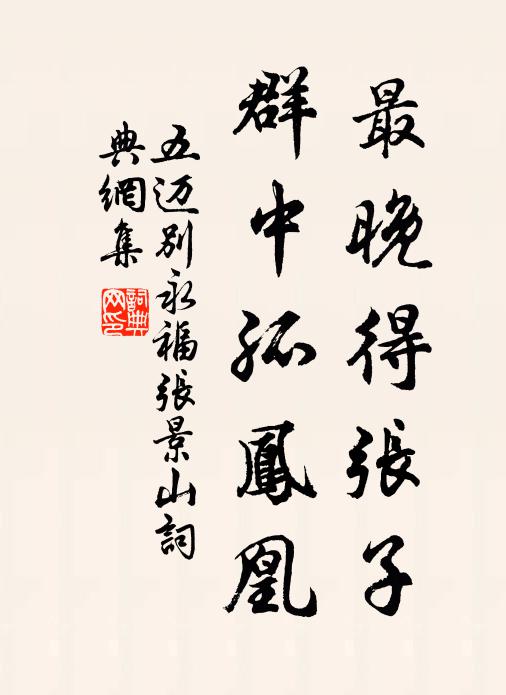 最晚得張子
群中孤鳳凰
五迈别永福張景山詞
典網集
詞典網印